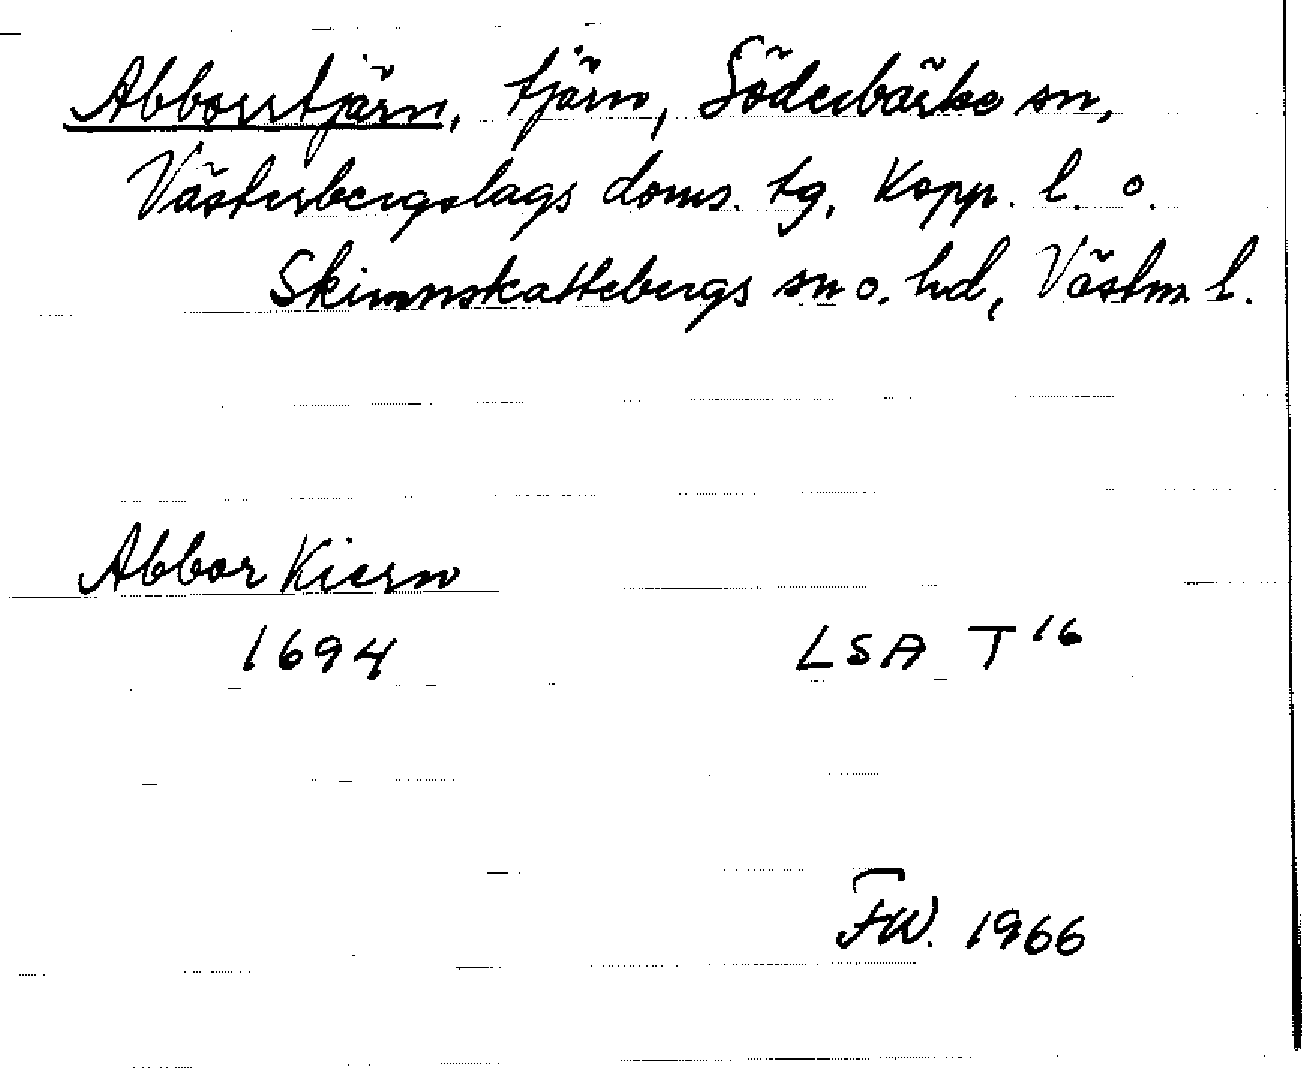 Abborrtjärn, tjärn, Söderbärke sn,
Västerbergslags doms. tg, Kopp. l. o.
Skinnskattebergs sn o. hd, Västm l.
Abbor Kiern
1694 LSA T 16
FW. 1966